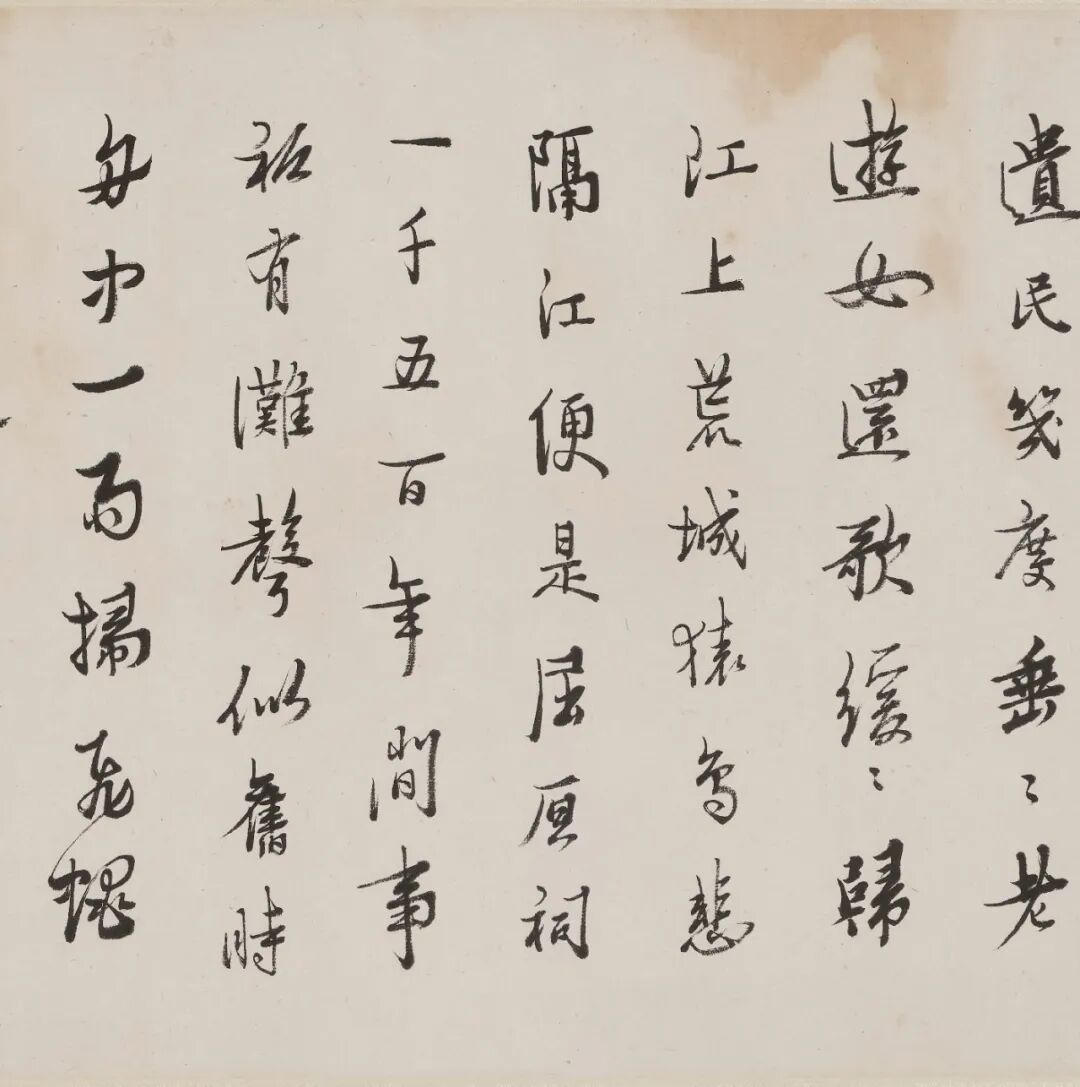 遺民幾度垂〻老
遊女還歌緩〻歸
江上荒城猿鳥悲
隔江便是屈原祠
一千五百年間事
祇有灘聲似舊時
舟中一雨掃飛蠅